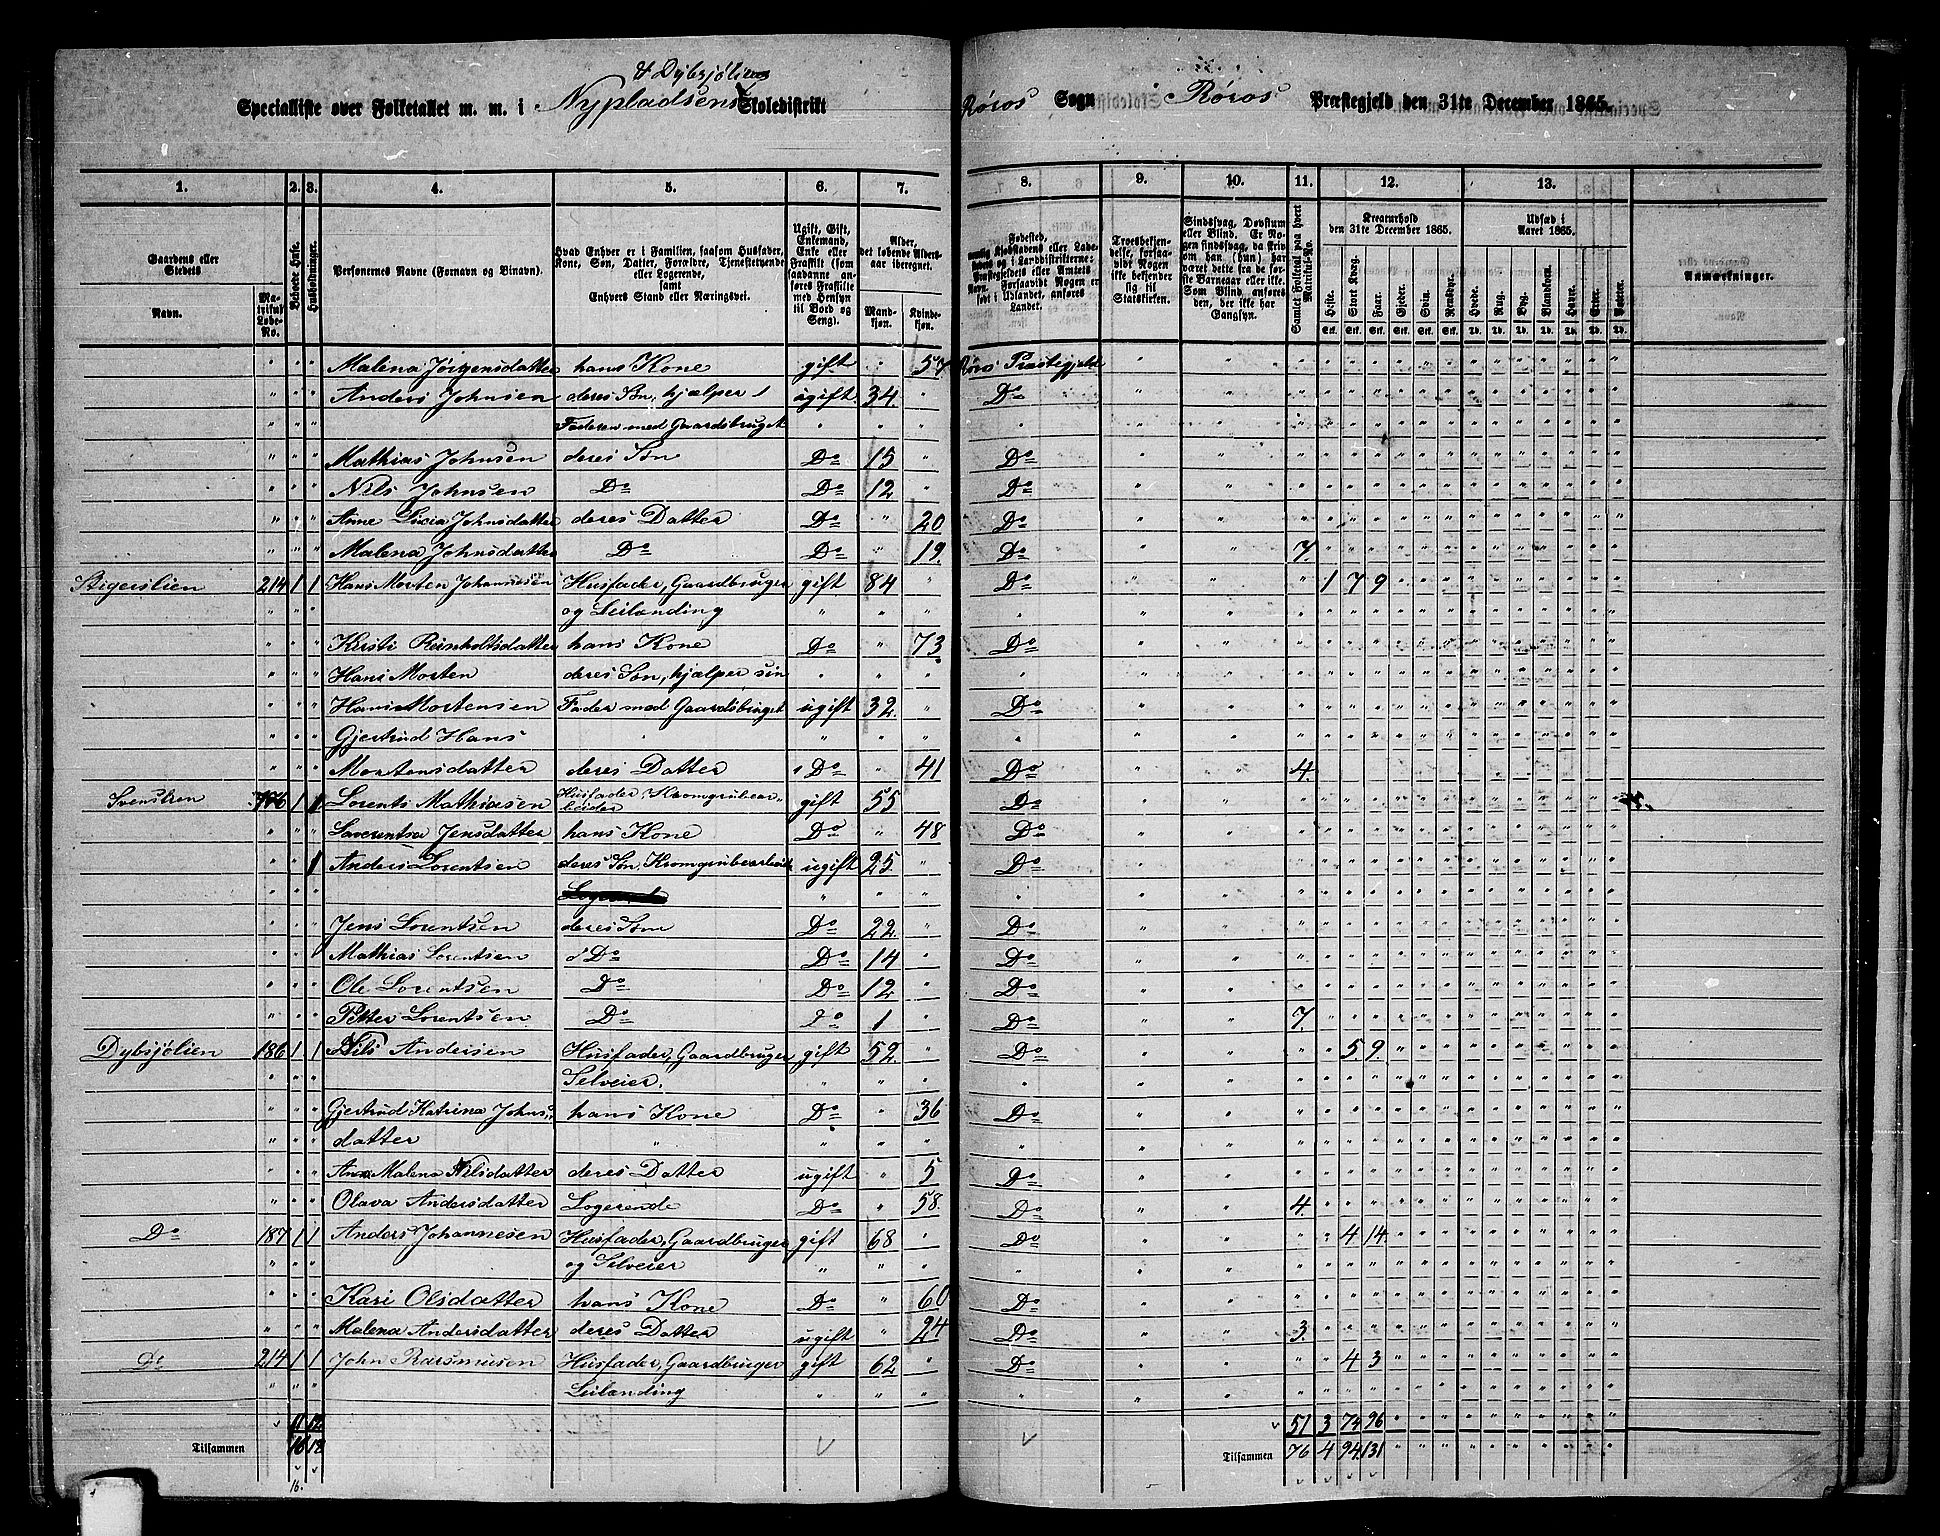 & Dybsjølien
Specialliste over Folketallet m. m. i Nypladsens Skoledistrikt Røros Sogn i Røros Præstegjeld den 31te December 1865.
1. 2. 3. 4. 5. 6. 7. 8. 9. 10. 11. 12. 13.
Gaardens eller Stedets Navn. Matrikul Løbe-No. Beboede Huse. Husholdninger. Personernes Navne (Fornavn og Binavn). Hvad Enhver er i Familien, saasom Husfader, Kone, Søn, Datter, Forældre, Tjenestetyende eller Logerende, samt Enhvers Stand eller Næringsvei. Ugift, Gift, Enkemand, Enke eller Fraskilt (som saadanne anføres Fraskilte med Hensyn til Bord og Seng). Alder, det løbende Aldersaar iberegnet. Mandkjøn. Kvindekjøn. Troesbekjendelse, forsaavidt Nogen ikke bekjender sig til Statskirken. Samlet Folketal paa hvert Matrikul-No. Kreaturhold den 31te December 1865. Heste. Stort Kvæg. Faar. Gjeder. Svin. Rensdyr. Udsæd i Aaret 1865. Hvede. Rug. Byg. Blandkorn. Havre. Erter. Poteter. Anmærkninger.
" " " Malena Jørgensdatter hans Kone gift " 57 Røros Præstegjeld
" " " Anders Johnsen deres Søn, hjælper ugift 34 " Do
" " " Faderen med Gaardsbruget " " "
" " " Mathias Johnsen deres Søn Do 15 " Do
" " " Nils Johnsen Do Do 12 " Do
" " " Anne Lucia Johnsdatter deres Datter Do " 20 Do
" " " Malena Johnsdatter Do Do " 19 Do 7
214 1 1 Hans Morten Johannesen Husfader, Gaardbruger gift 84 " Do 1 7 9
" " " og Leilending " " "
" " " Kirsti Reinholtsdatter hans Kone Do " 73 Do
" " " Hans Morten deres Søn, hjælper sin " " "
" " " Hans Mortensen Fader med Gaardsbruget ugift 32 " Do
" " " Gjertrud Hans " " " "
" " " Mortensdatter deres Datter Do " 41 Do 4
1 1 Lorents Mathiasen Husfader, Kromgrubearbeider gift 55 " Do
" " " Laverentsa Jensdatter hans Kone Do " 48 Do
" " 1 Anders Lorentsen deres Søn, Kromgrubearbeid ugift 25 " Do
" " " " " "
" " " Jens Lorentsen deres Søn Do 22 " Do
" " " Mathias Lorentsen Do Do 14 " Do
" " " Ole Lorentsen Do Do 12 " Do
" " " Petter Lorentsen Do Do 1 " Do 7
Dybsjølien 186 1 1 Nils Andersen Husfader, Gaardbruger gift 52 " Do 5 9
" " " Selveier. " " "
" " " Gjertrud Katrina Johns- hans Kone Do " 36 Do
" " " datter " " " "
" " " Ane Malena Nilsdatter deres Datter ugift " 5 Do
" " " Olava Andersdatter Logerende Do " 58 Do 4
Do 187 1 1 Anders Johannesen Husfader, Gaardbruger gift 68 " Do 4 14
" " " og Selveier " " "
" " " Kari Olsdatter hans Kone Do " 60 Do
" " " Malena Andersdatter deres Datter ugift " 24 Do 3
Do 214 1 1 John Rasmusen Husfader, Gaardbruger gift 62 " Do 4 3
" " " Leilending " " "
11 12 51 3 74 96
Tilsammen 16 18 Tilsammen 76 4 94 131
16.